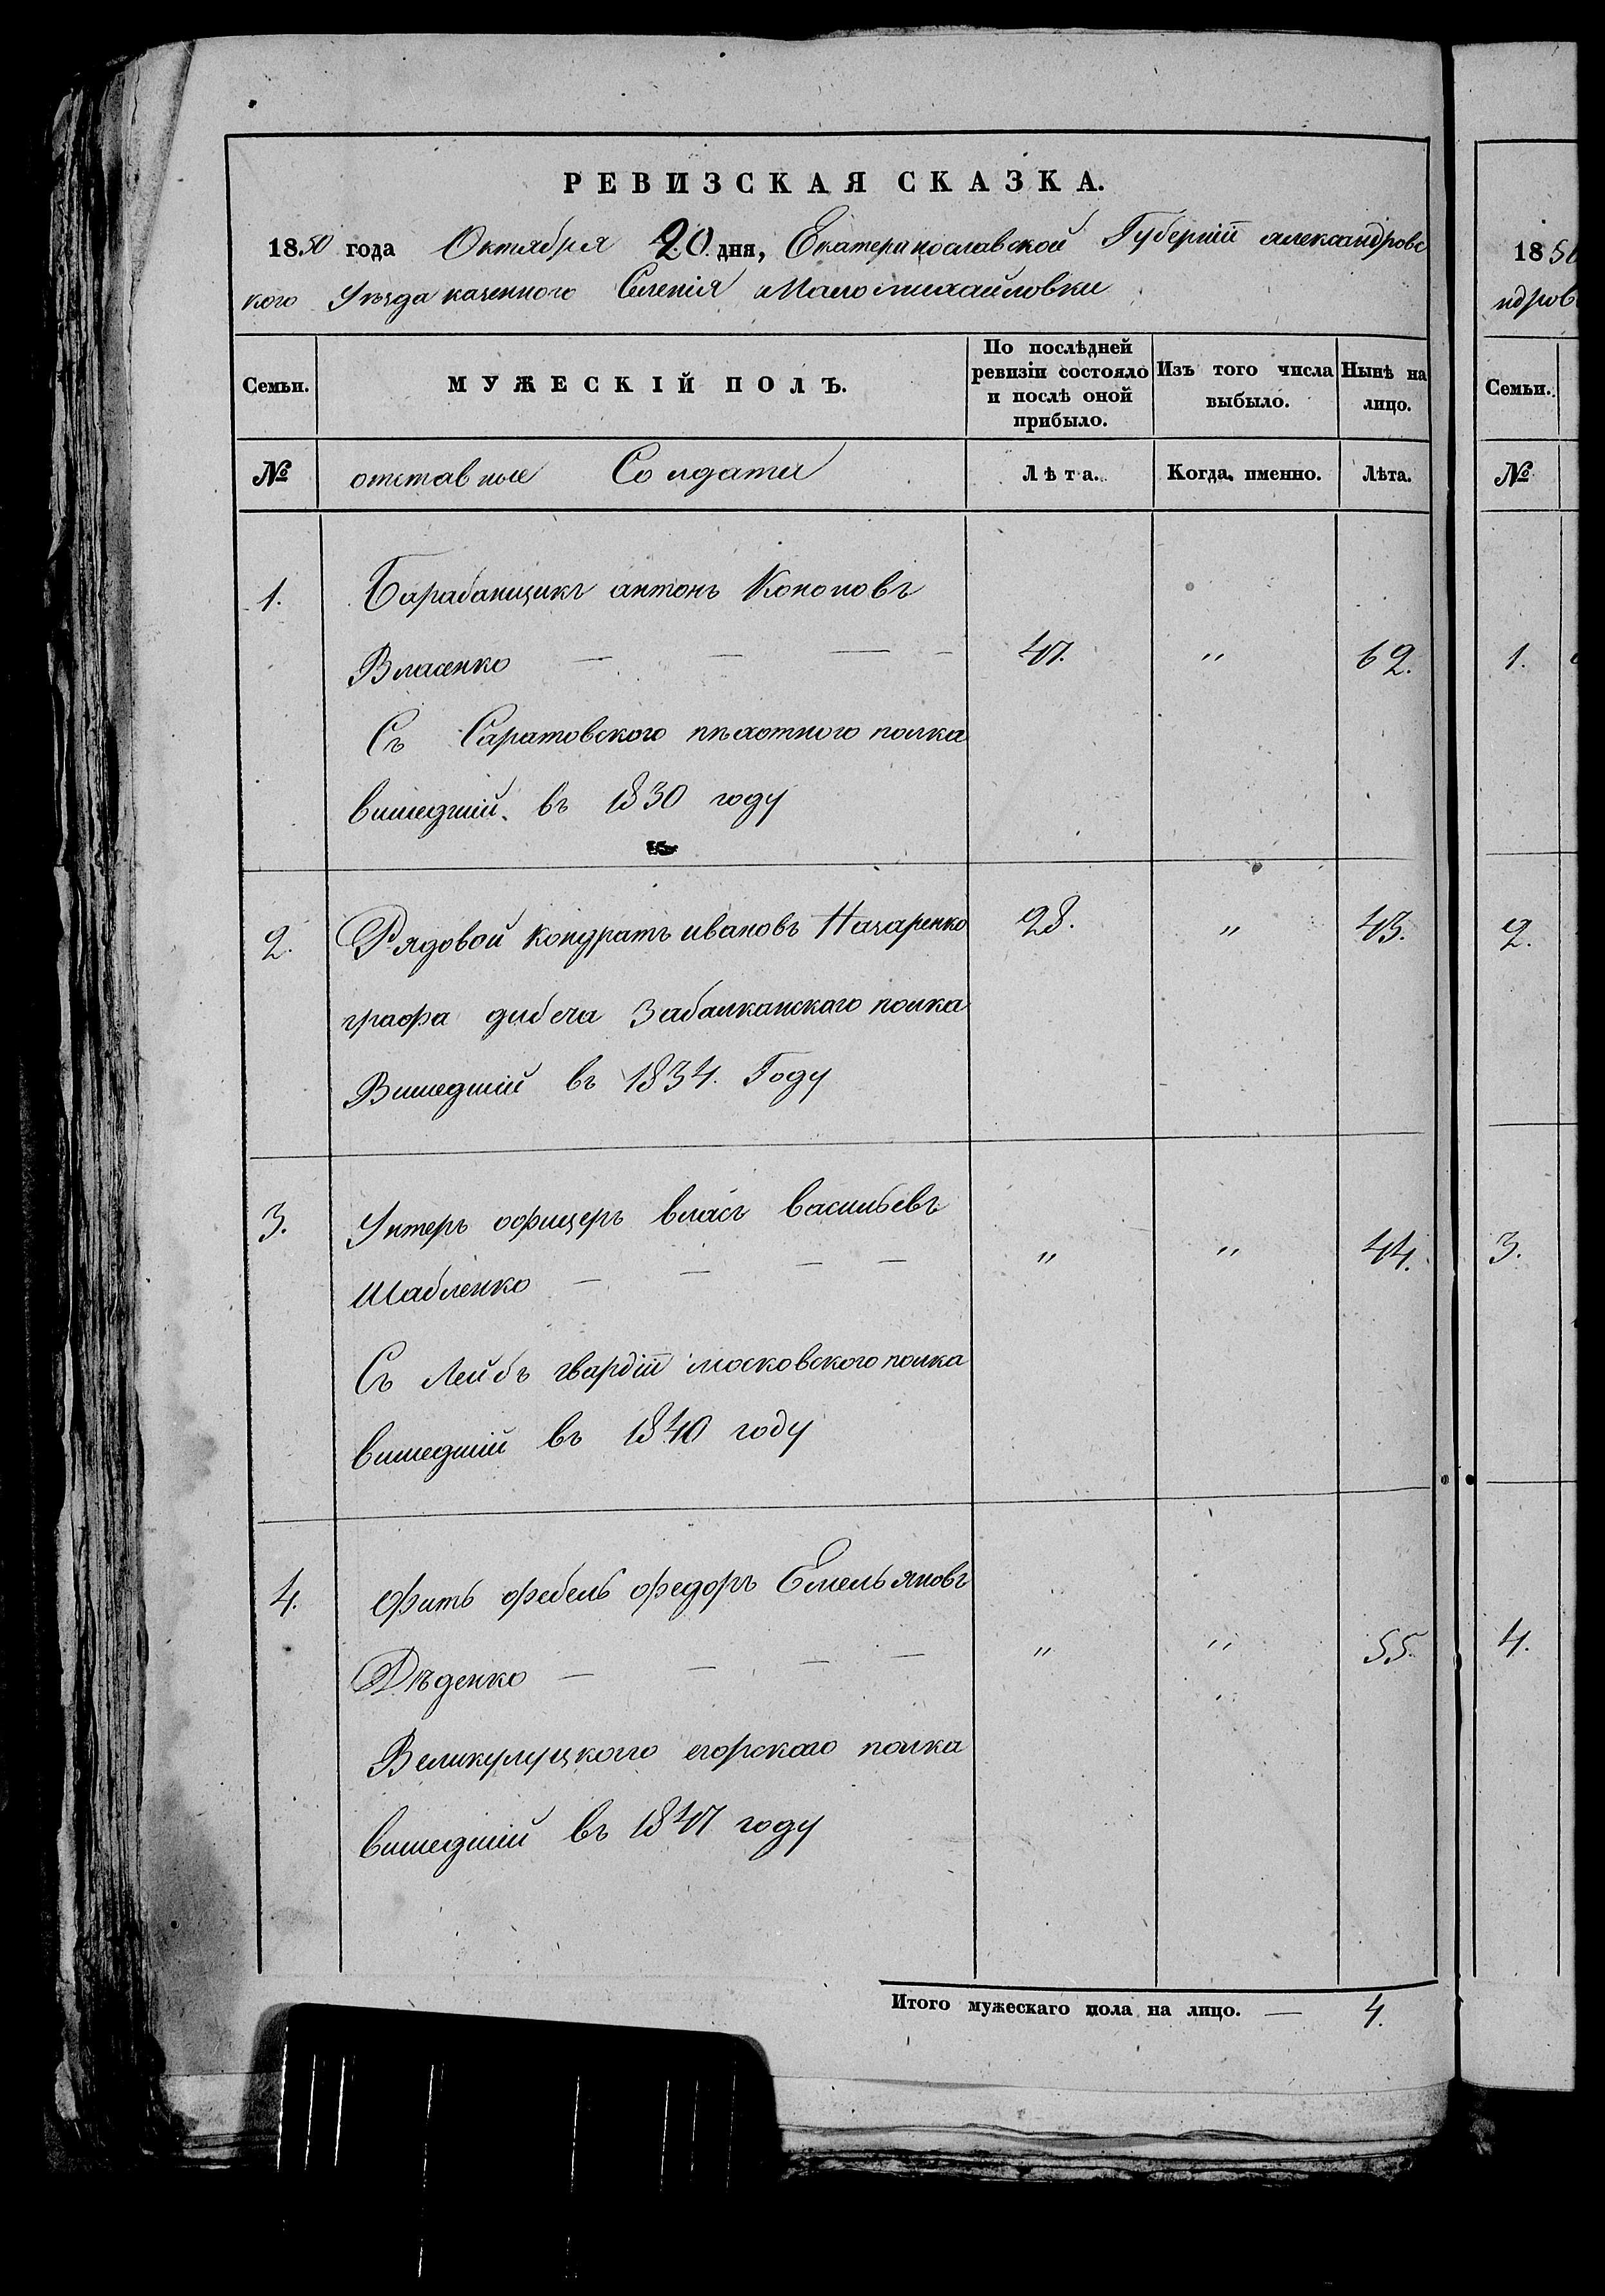 РЕВИЗСКАЯ СКАЗКА.
1850 года Октября 20 дня, Екатеринославской Губернiи александровс
кого Уѣзда казенного Селенiя Маломихайловки
Семьи.
МУЖЕСКІЙ ПОЛЪ.
По послѣдней ревизіи состояло и послѣ оной прибыло.
Изъ того числа выбыло.
Нынѣ на лицо.
№ отставные Солдаты Лѣта. Когда именно. Лѣта.
1. Барабанщикъ антонъ Кононовъ
Власенко — — — — 47. " 62.
Съ Саратовского пѣхотного полка
вишедшiй въ 1830 году
2. Рядовой Кондратъ ивановъ Назаренко 28. " 43.
графа дибеча Забалканскаго полка
Вишедшiй въ 1834. Году
3. Унтеръ офицеръ власъ васильевъ
Шабленко — — — — " " 44.
Съ Лейбъ гвардiи московского полка
вишедшiй въ 1840 году
4. Фить фебель федоръ Емельяновъ
Дѣденко — — — — " " 55.
Великулуцкого егорского полка
вишедшiй въ 1847 году
Итого мужескаго пола на лицо. — 4.
1850
ндров
Семьи.
№
1.
2.
3.
4.